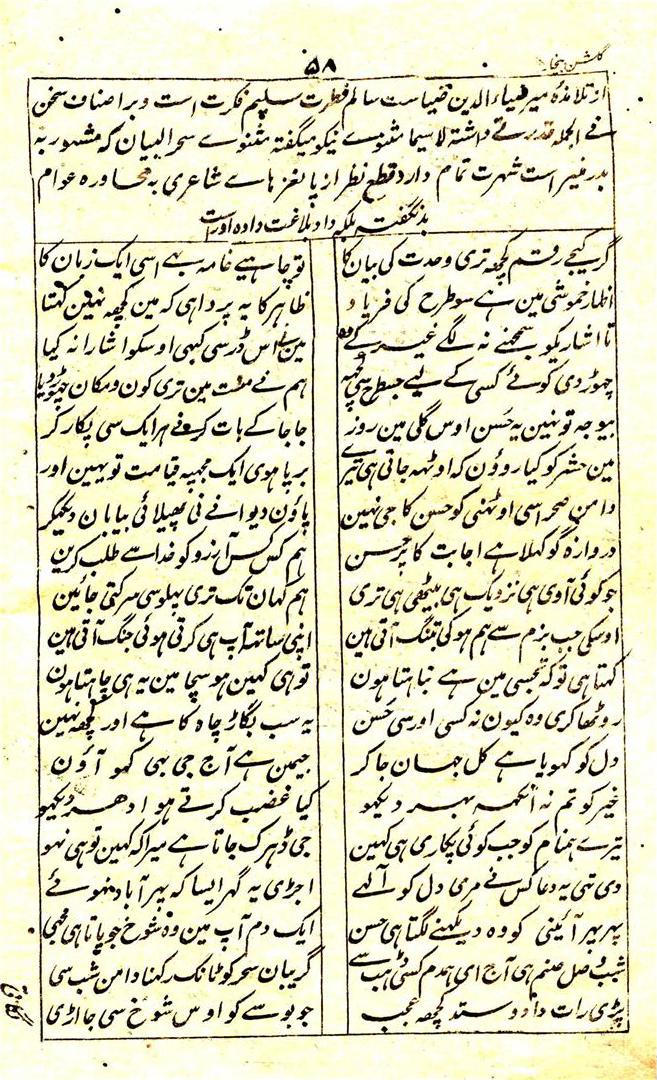 گلشن بیخار
۵۸
از تلامذہ میر ضیاء الدین ضیاست سالم فطرت سلیم فکرت است و بر اصناف سخن
فے الجملہ قدرتے داشتہ لاسیما مثنوے نیکو میگفتہ مثنوے سحر البیان کہ مشہور بہ
بدر منیر است شہرت تمام دارد قطع نظر از پا نغزہاے شاعری بہ محاورہ عوام
بد نگفتہ بلکہ داد بلاغت دادہ اوراست
گر کیجے رقم کچھہ تری وحدت کی بیان کا
تو چاہیے خامہ بہے اسی ایک زبان کا
اظہار خموشی مین ہے سو طرح کی فریاد
ظاہر کا یہ پردا ہی کہ مین کچھہ نہین کہتا
تا اشاریکو سمجھنے نہ لگے غیر کے
مین اس ڈر سی کبہی اوسکو اشارا نہ کیا
چھوڑ دی کوئے کسی کے لیے جسطرح سی کچھہ
ہم نے مفت مین تری کون و مکان چھوڑ دیا
بیوجہ تو نہین یہ حسن اوس گلی مین روز
جا جا کے بات کرنے ہر ایک سی پکار کر
مین حشر کو کیا روؤن کہ اوٹھہ جاتی ہی تیرے
برپا ہوی ایک مجھپہ قیامت تو یہین اور
دامن صحرا سی اوٹھنی کو حسن کا جی نہین
پاؤن دیوانے نی پھیلائی بیابان دیکھکر
دروازہ گو کھلا ہے اجابت کا پر حسن
ہم کس کس آرزو کو خدا سے طلب کرین
جو کوئی آوی ہی نزدیک ہی بیٹھی ہی تری
ہم کہان تک تری پہلو سی سرکتی جائین
اوسکی جب بزم سے ہم ہو کی بتنگ آتی ہین
اپنی ساتھہ آپ ہی کرتی ہوئی جنگ آتی ہین
کہتا ہی تو کہ تجھسی مین ہے نباہتا ہون
تو ہی کہین ہو سچا مین یہ ہی چاہتا ہون
روٹھا کری وہ کیون نہ کسی اور سی حسن
یہ سب بگاڑ چاہ کا ہے اور کچھہ نہین
دل کو کھویا ہے کل جہان جا کر
جیمن ہے آج جی بہی کھو آؤن
غیر کو تم نہ آنکھہ بہر دیکھو
کیا غضب کرتے ہو ادھر دیکھو
تیرے ہمنام کو جب کوئی پکاری ہی کہین
جی دھڑک جاتا ہے میرا کہ کہین تو ہی نہو
دی تہی یہ دعا کس نے مری دل کو الٰہے
اجڑی یہ گہر ایسا کہ پہر آباد نہوئے
پہر پہر آئینی کو وہ دیکھنے لگتا ہی حسن
ایک دم آپ مین وہ شوخ جو پاتا ہی مجھی
شب وصل صنم ہی آج ای ہمدم کسی ڈھب سے
گریبان سحر کو ٹانک رکھنا دامن شب سی
پڑی رات داد و ستد کچھہ عجب
جو بوسے کو اوس شوخ سی جا اڑی